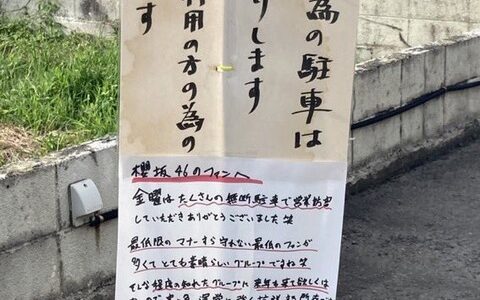 為の駐車は
りします
利用の方の為の
す
櫻坂46のファンへ
金曜はたくさんの無断駐車で営業妨害
していただきありがとうございました笑
最低限のマナーすら守れない最低のファンが
多くてとても素晴らしいグループですね笑
そんな程度の知れたグループに来年も来て欲しくは